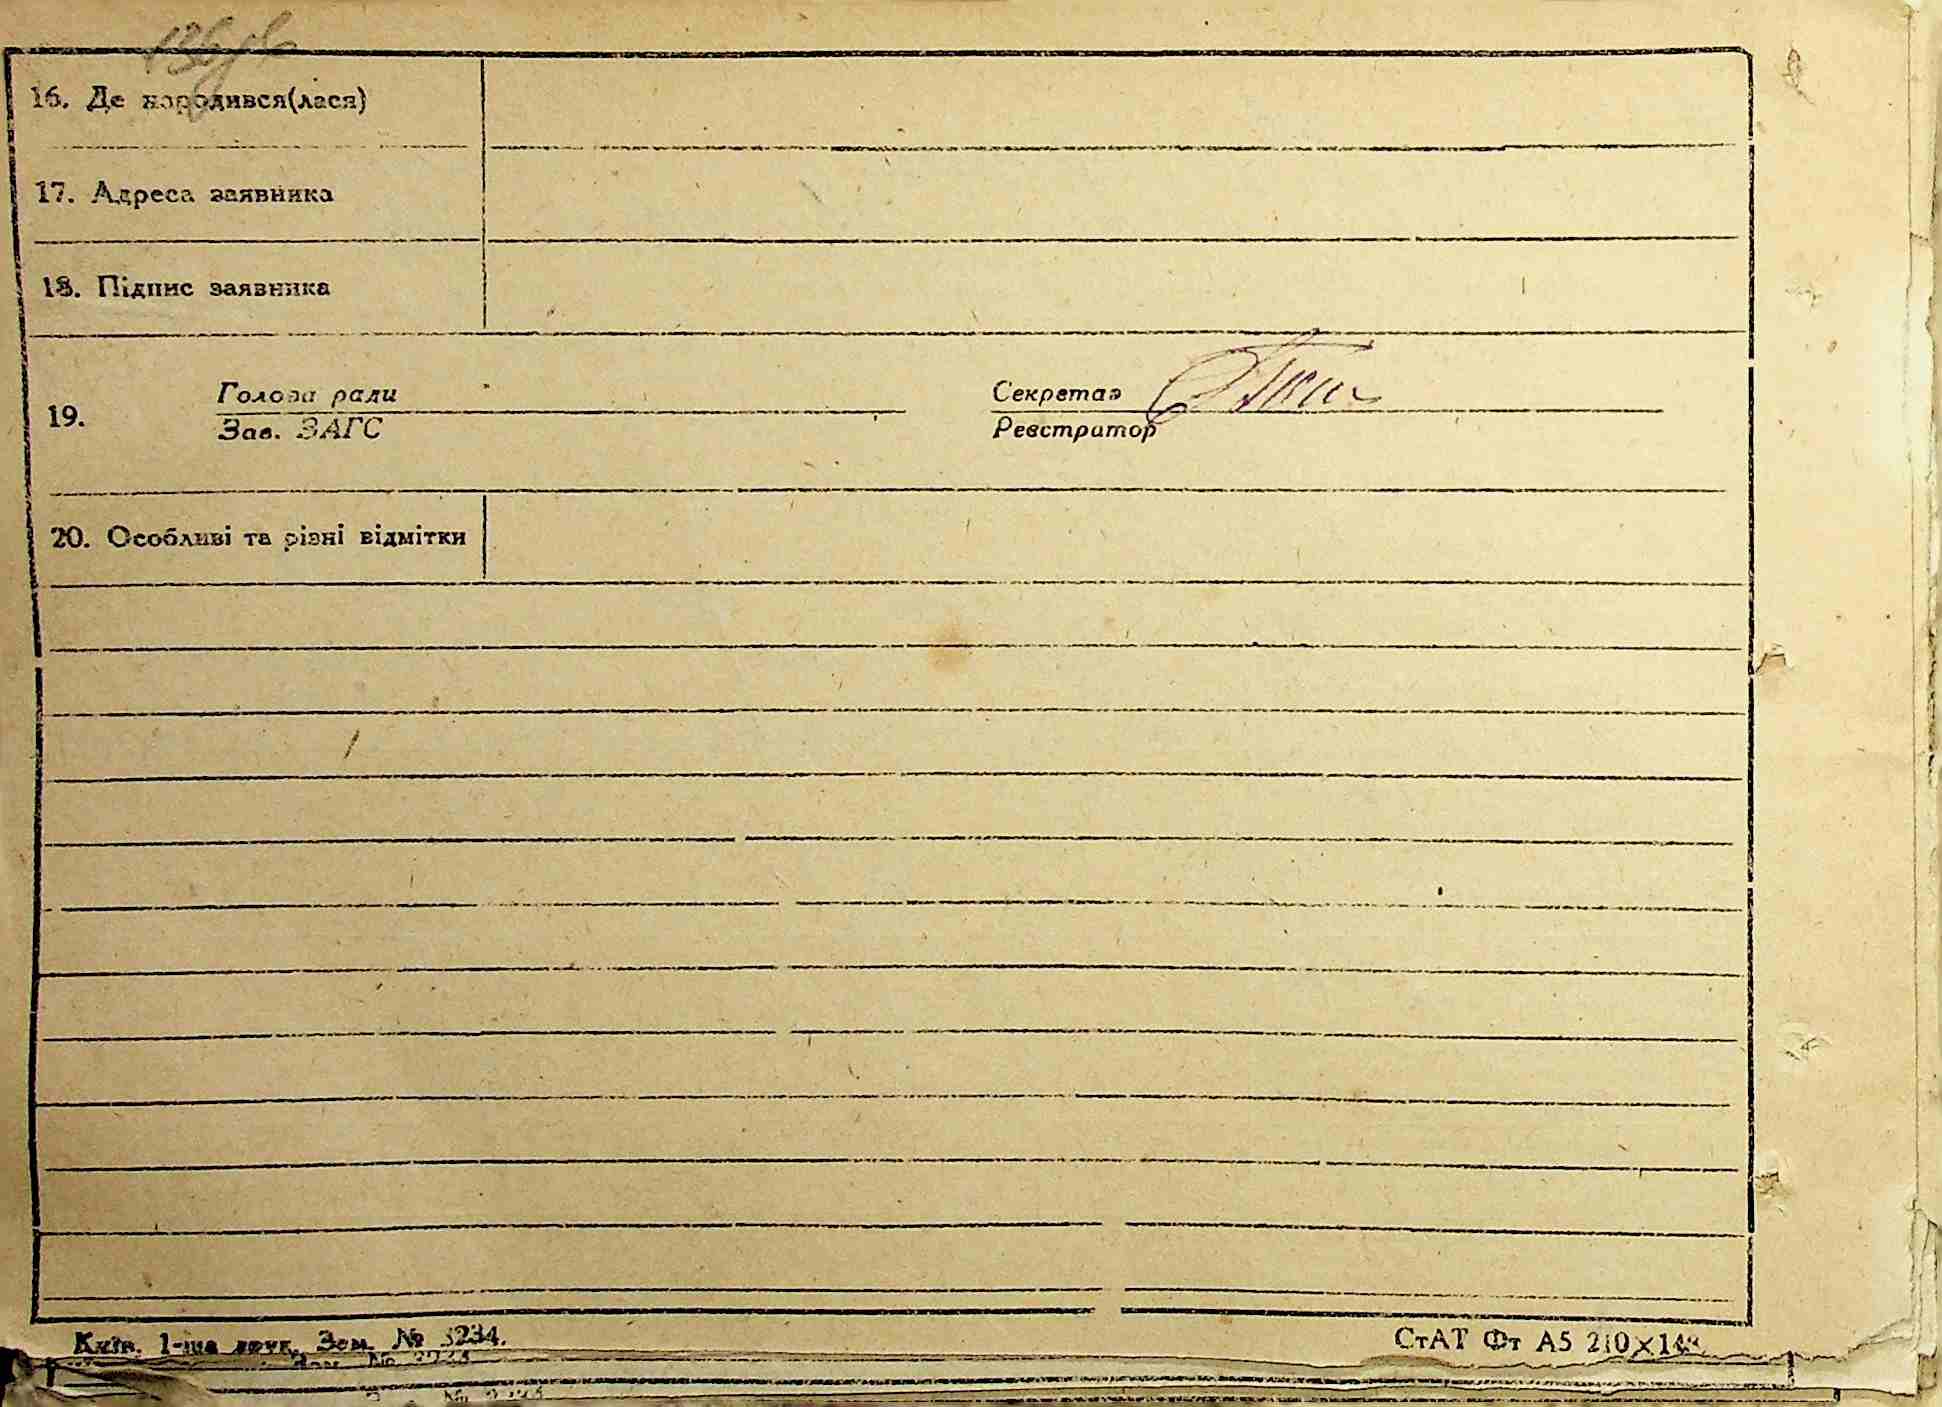 136зв
16. Де народився(лася)
17. Адреса заявника
18. Підпис заявника
19.
Голова ради
Зав. ЗАГС
Секретар
Реєстратор
20. Особливі та різні відмітки
Київ. 1-ша друк. Зам. № 3234.
СтАТ Фт А5 210×148